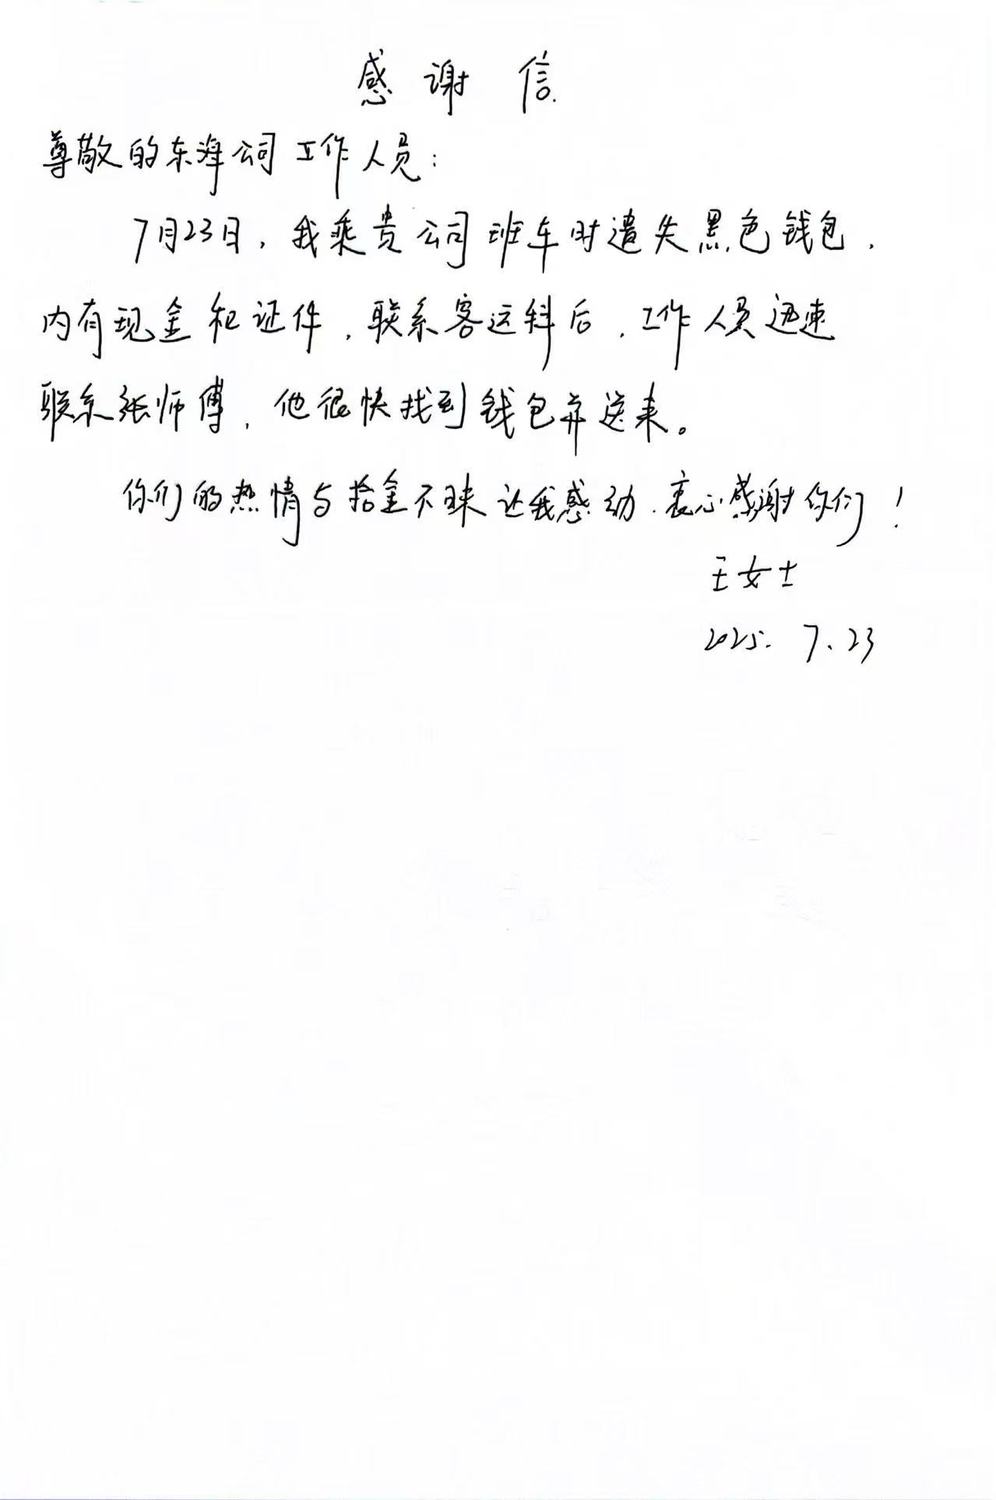 感谢信
尊敬的东海公司工作人员：
7月23日，我乘贵公司班车时遗失黑色钱包，
内有现金和证件，联系客运科后，工作人员迅速
联系张师傅，他很快找到钱包并送来。
你们的热情与拾金不昧让我感动，衷心感谢你们！
王女士
2025.7.23